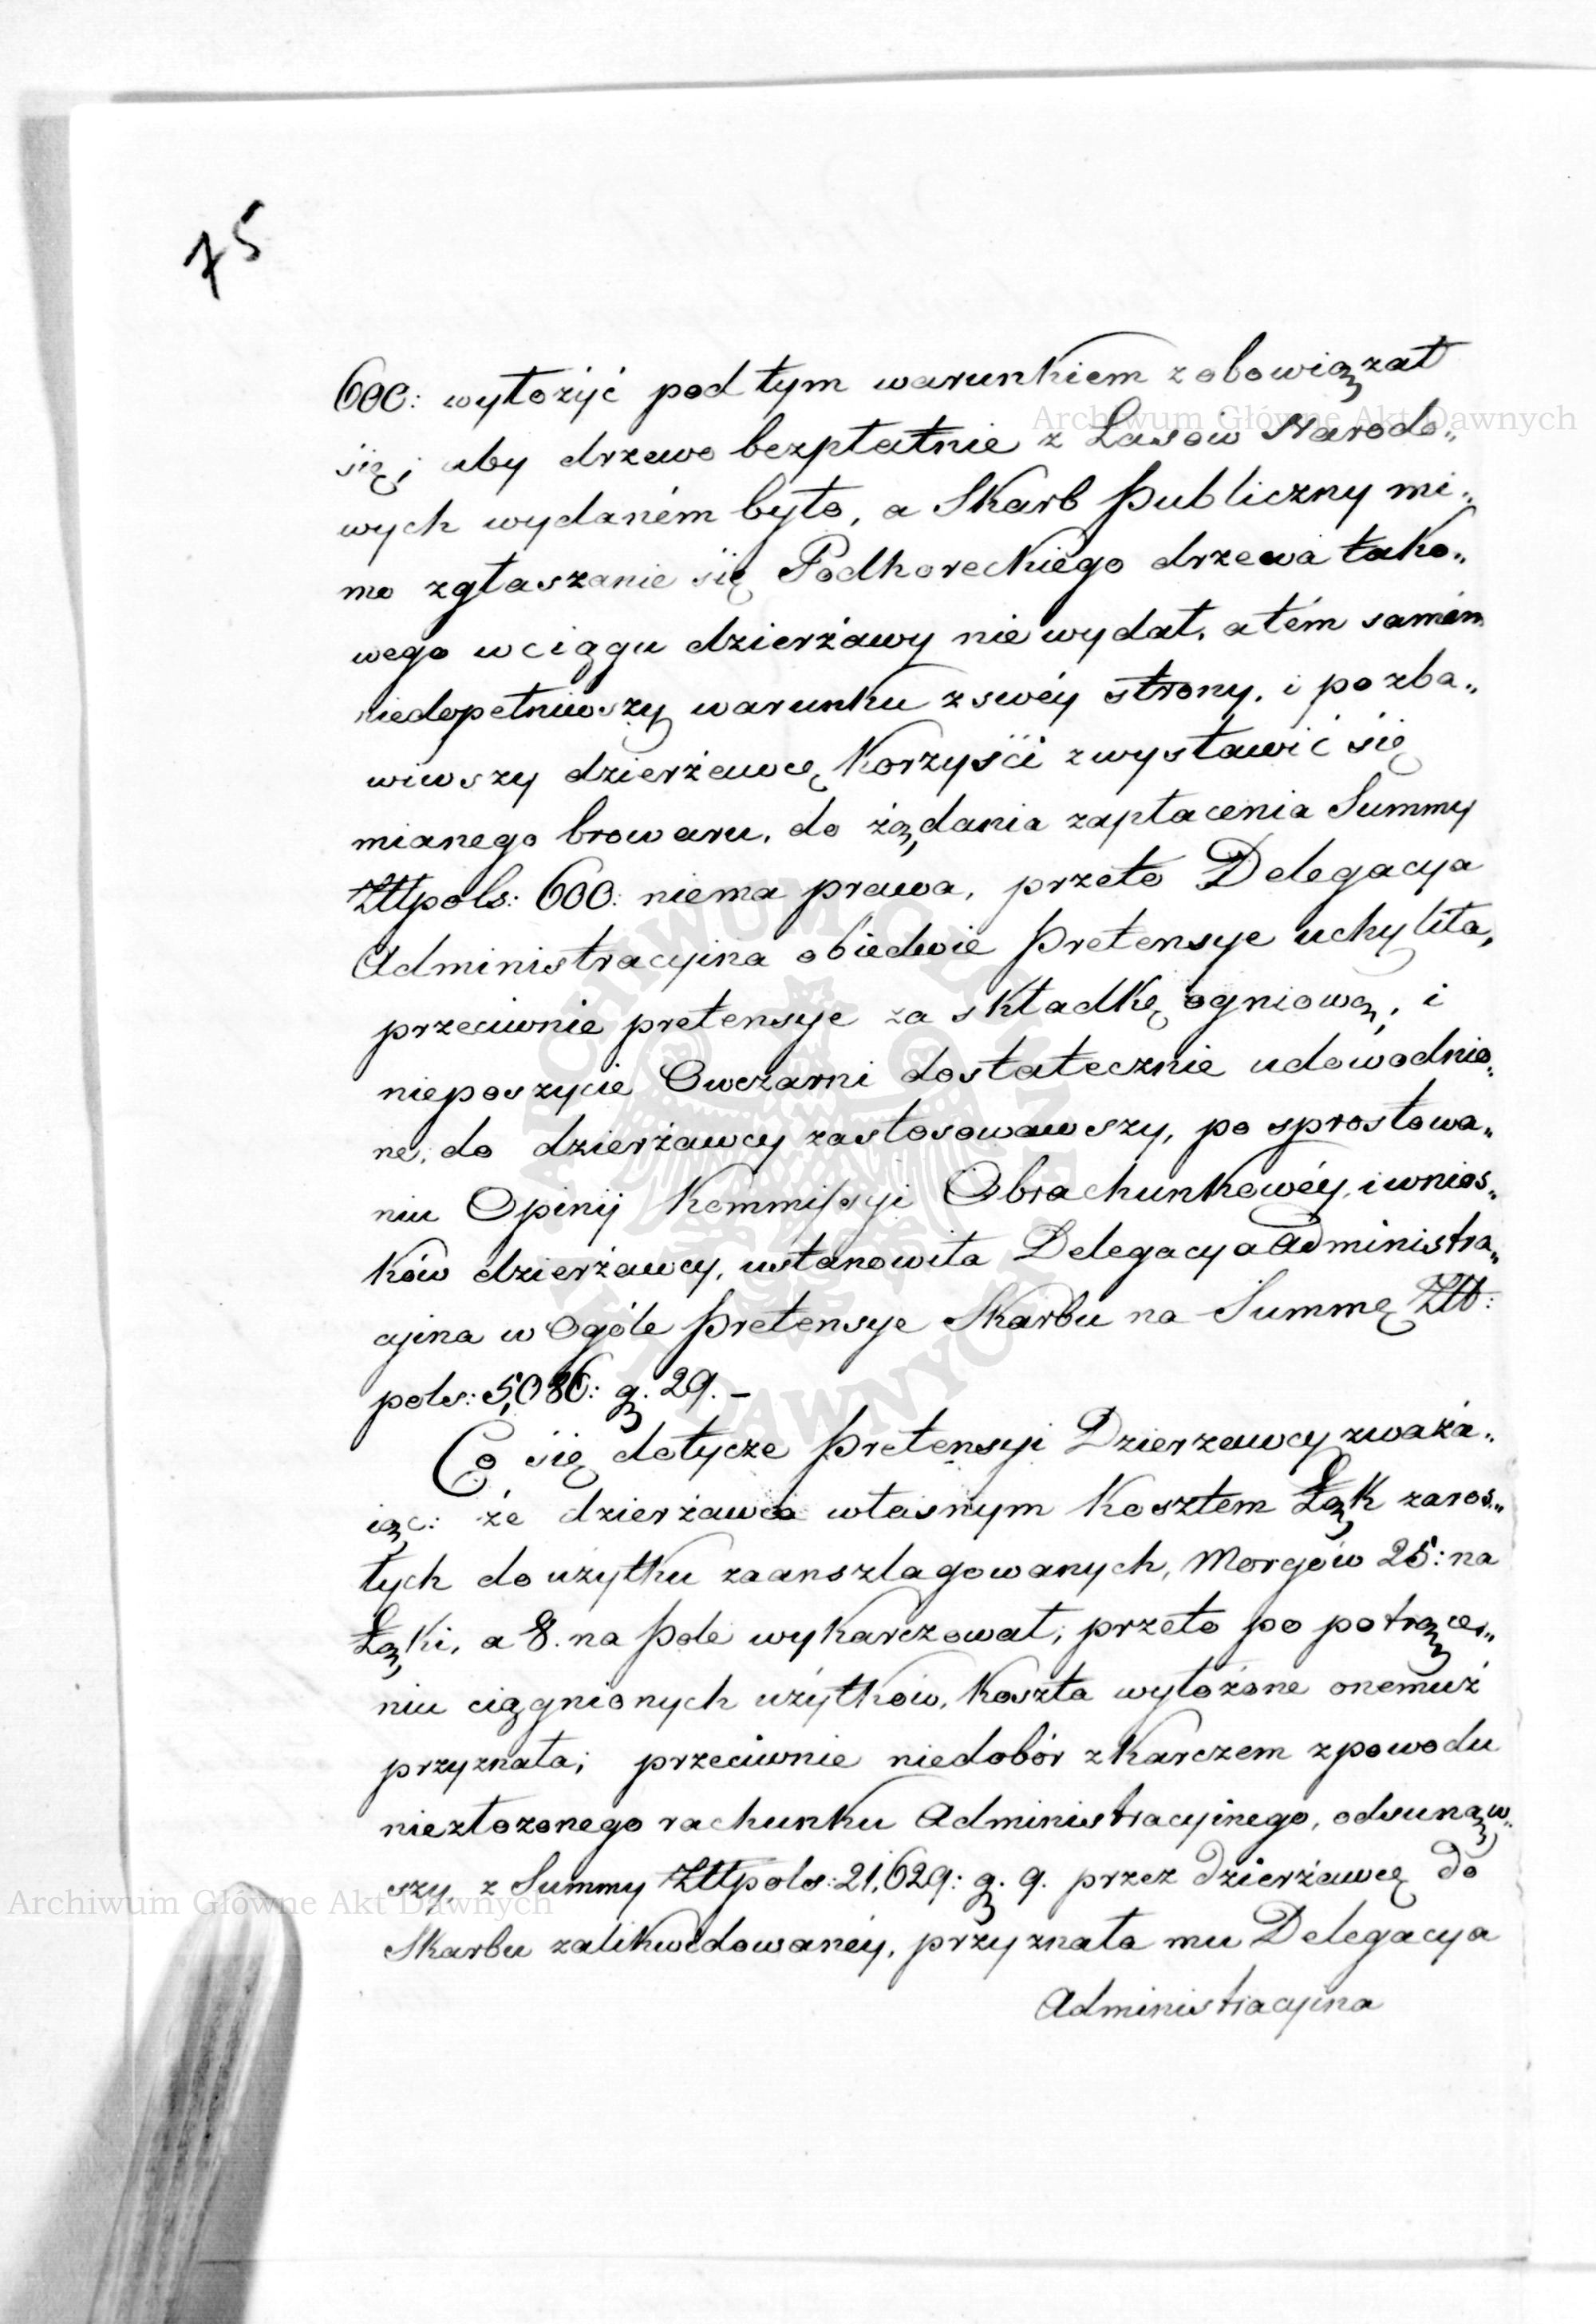 75
600: wyłożyć pod tym warunkiem zobowiązał
się; aby drzewo bezpłatnie z Lasow Narodo„
wych wydaném było, a Skarb Publiczny mi„
mo zgłaszanie się Podhoreckiego drzewa tako„
wego w ciągu dzierżawy nie wydał, a tém samém
niedopełniwszy warunku z swéy strony, i pozba„
wiwszy dzierżawcę korzyści z wystawić się
mianego browaru, do żądania zapłacenia Summy
Złłpols: 600: niema prawa, przeto Delegacya
Administracyina obiedwie Pretensye uchyliła,
przeciwnie pretensye za składkę ogniową; i
nieposzycie Owczarni dostatecznie udowodnio„
ne, do dzierżawcy zastosowawszy, po sprostowa„
niu Opinij Kommissyi Obrachunkowéy, i wnios„
ków dzierżawcy, ustanowiła Delegacya Administra„
cyina w Ogóle Pretensye Skarbu na Summę Złł:
pols: 5,086: g. 29. –
Co się dotycze Pretensyi Dzierzawcy zważa„
iąc: że dzierżawca własnym kosztem Łąk zaros„
łych do użytku zaanszlagowanych, Morgów 25: na
Łąki, a 8. na Pole wykarczował; przeto po potrące„
niu ciągnionych użytków, koszta wyłożone onemuż
przyznała; przeciwnie niedobór z Karczem z powodu
niezłozonego rachunku Administracyinego, odsunąw„
szy, z Summy Złłpols: 21,629: g. 9. przez dzierżawcę do
Skarbu zalikwidowanéy, przyznała mu Delegacya
Administracyina
Archiwum Główne Akt Dawnych
Archiwum Główne Akt Dawnych
ARCHIWUM GŁÓWNE AKT DAWNYCH